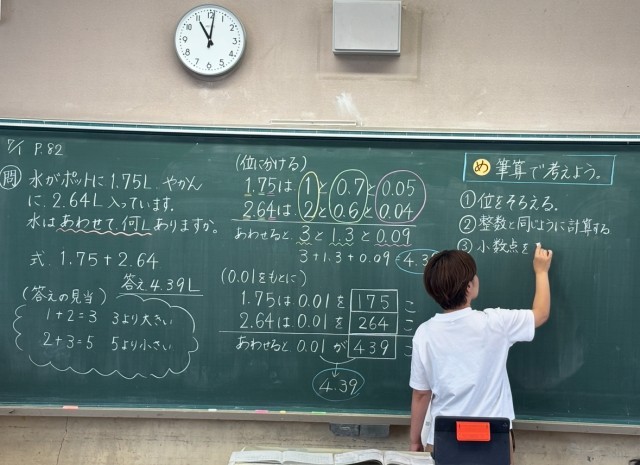 7/1 P.82
問 水がポットに1.75L、やかん
に、2.64L入っています。
水はあわせて何Lありますか。
式 1.75+2.64
答え 4.39L
(答えの見当)
1+2=3 3より大きい
2+3=5 5より小さい
(位に分ける)
1.75は 1と 0.7と 0.05
2.64は 2と 0.6と 0.04
あわせると 3と 1.3と 0.09
3+1.3+0.09=4.39
(0.01をもとに)
1.75は 0.01を 175 こ
2.64は 0.01を 264 こ
あわせると 0.01が 439 こ
4.39
め 筆算で考えよう。
①位をそろえる。
②整数と同じように計算する
③小数点を